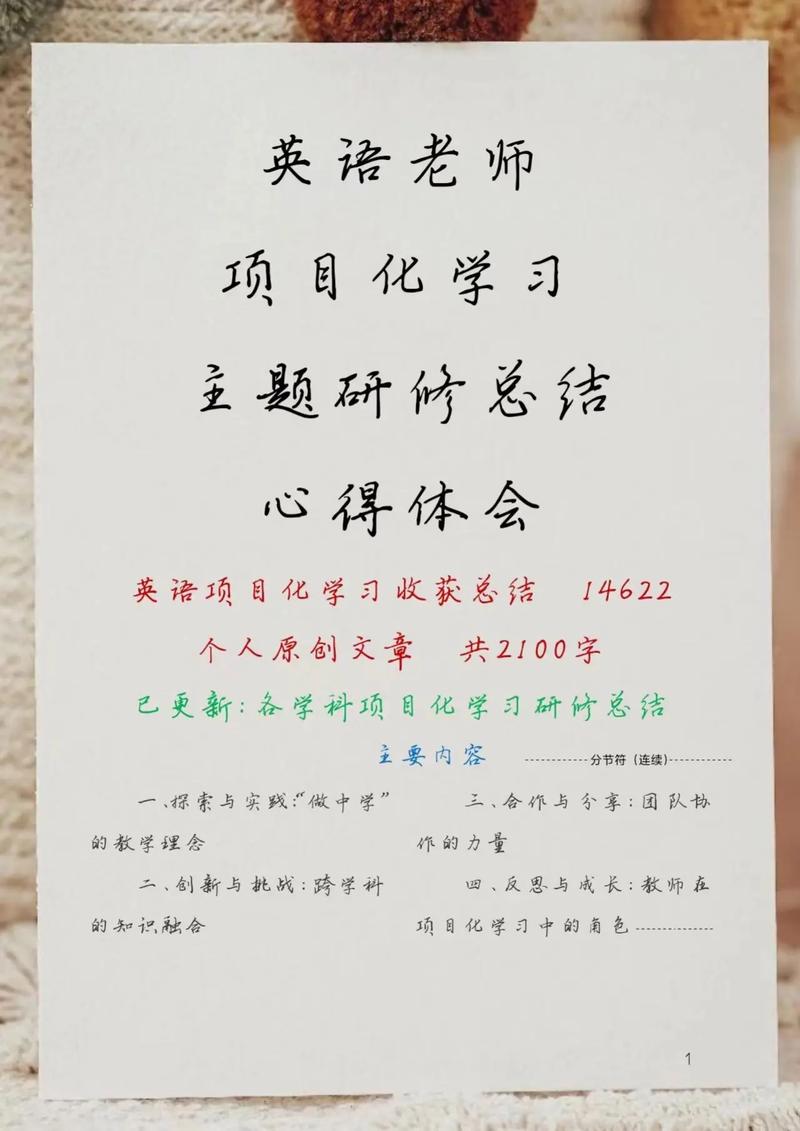 英语老师
项目化学习
主题研修总结
心得体会
英语项目化学习收获总结 14622
个人原创文章 共2100字
已更新:各学科项目化学习研修总结
主要内容
分节符(连续)
一、探索与实践:“做中学”
的教学理念
二、创新与挑战:跨学科
的知识融合
三、合作与分享:团队协
作的力量
四、反思与成长:教师在
项目化学习中的角色
1